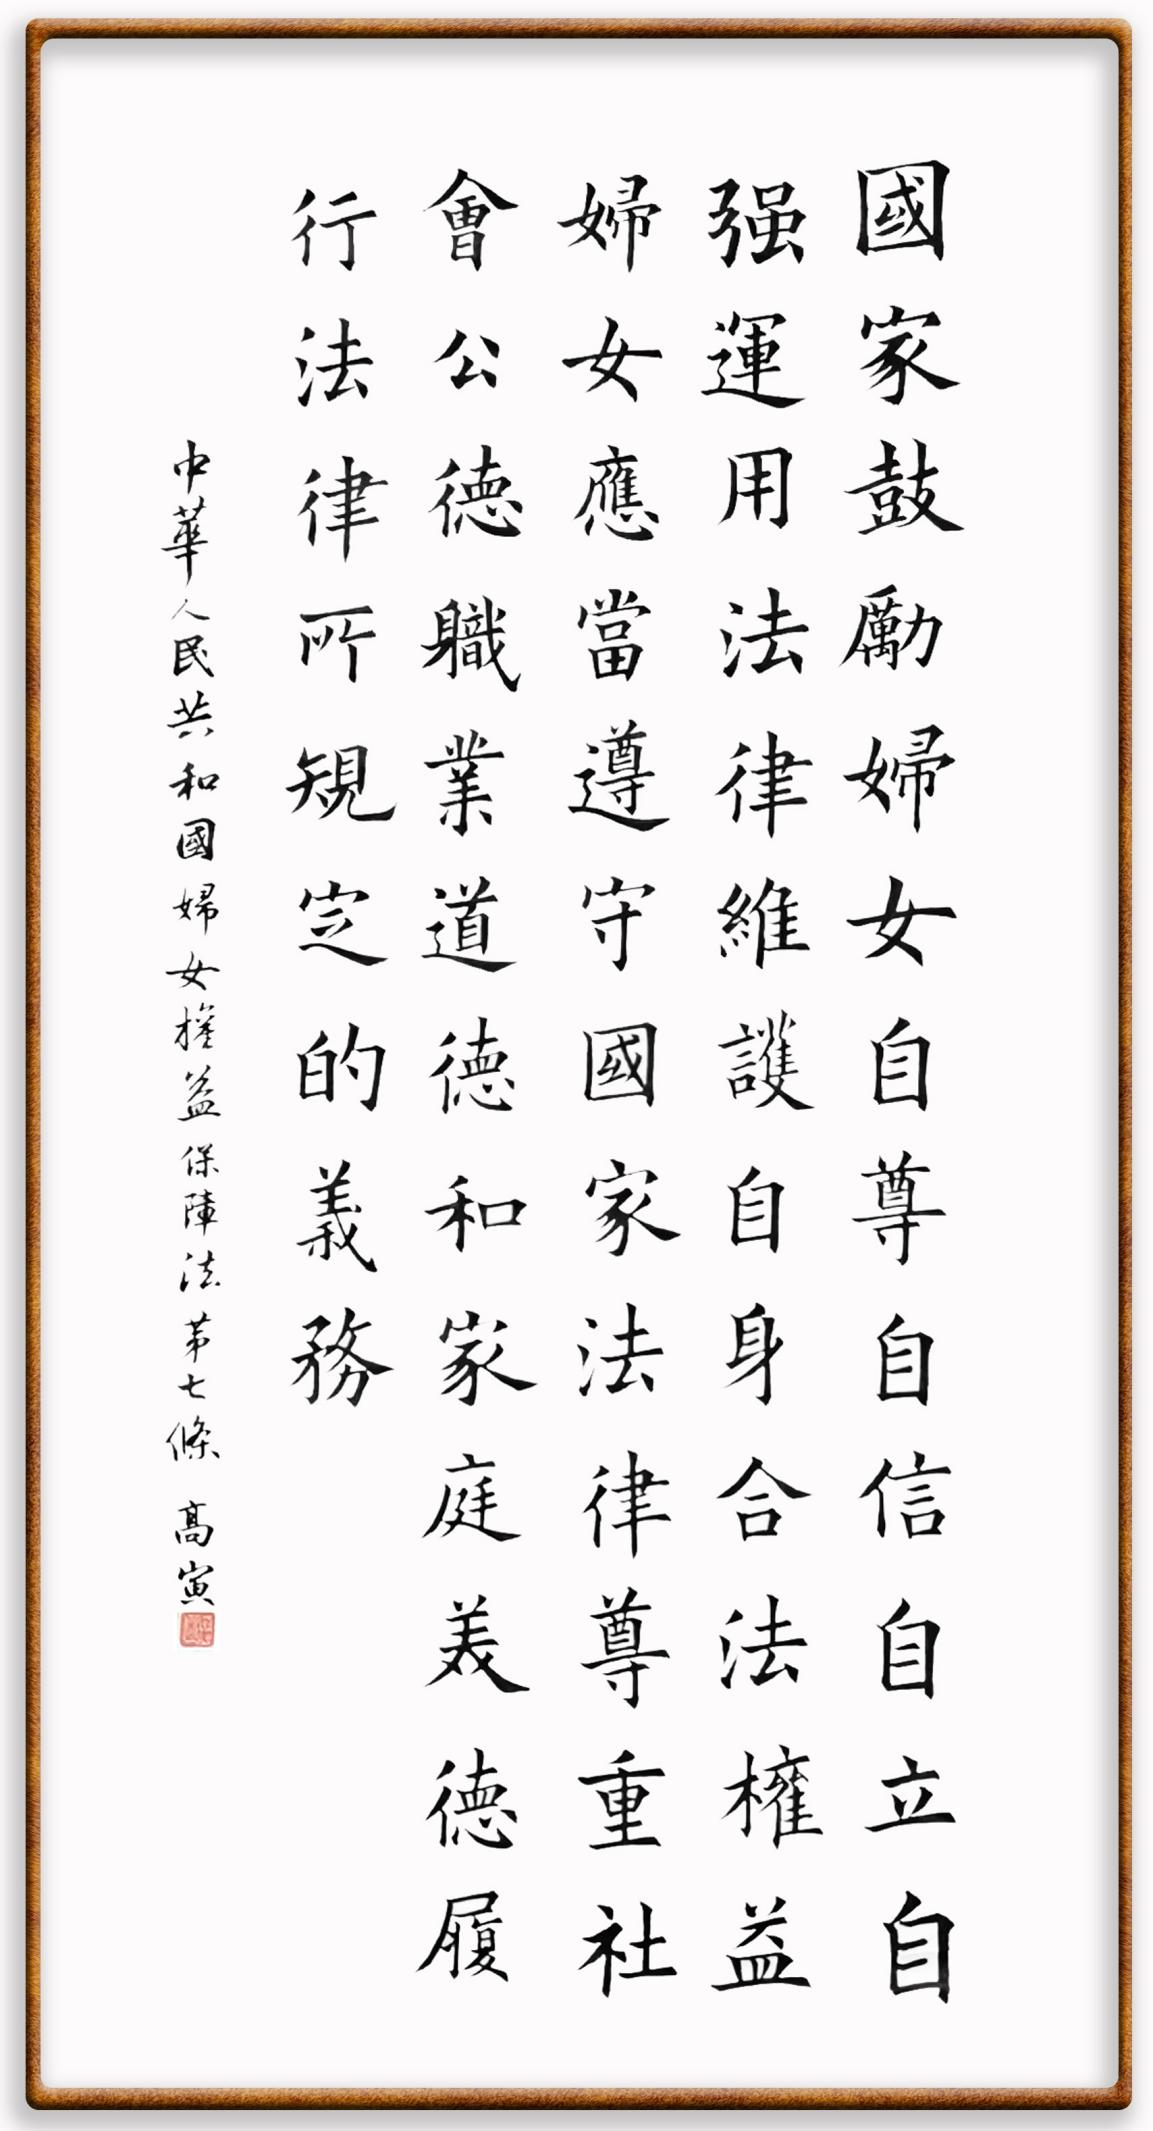 國家鼓勵婦女自尊自信自立自
强運用法律維護自身合法權益
婦女應當遵守國家法律尊重社
會公德職業道德和家庭美德履
行法律所規定的義務
中華人民共和國婦女權益保障法第七條 高寅